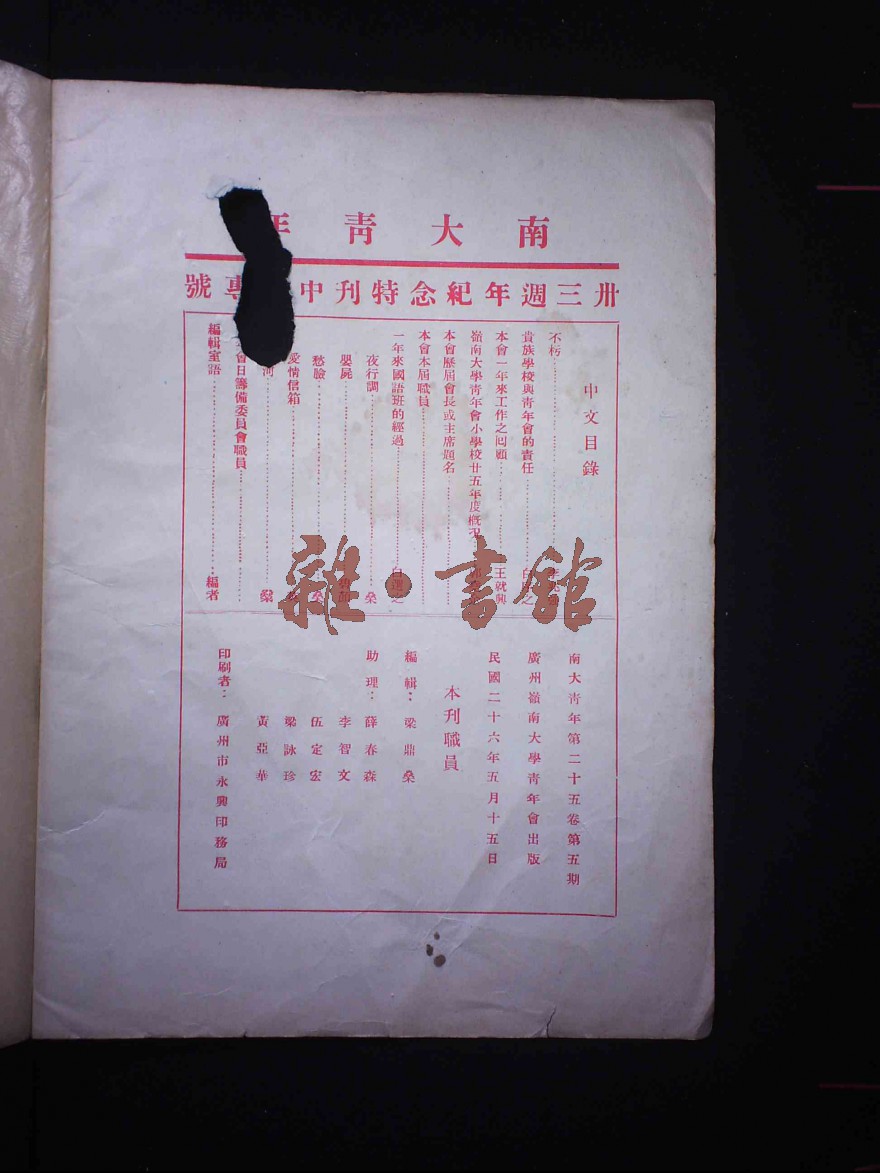 南大青年
卅三週年紀念特刊中 專號
中文目錄
不朽
貴族學校與青年會的責任
本會一年來工作之囘顧 王就興
嶺南大學青年會小學校廿五年度概況
本會歷屆會長或主席題名
本會本屆職員
一年來國語班的經過 白選之
夜行調 燊
嬰屍
愁臉
愛情信箱
河 燊
會日籌備委員會職員
編輯室語 編者
南大青年第二十五卷第五期
廣州嶺南大學青年會出版
民國二十六年五月十五日
本刊職員
編輯：梁鼎燊
助理：薛春森
李智文
伍定宏
梁詠珍
黃亞華
印刷者：廣州市永興印務局
雜·書館